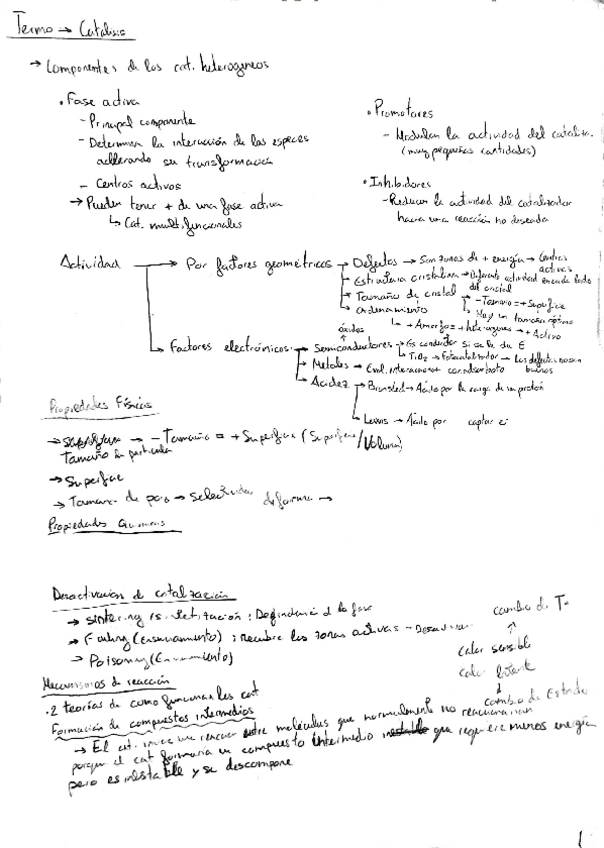 Termo → Catálisis
→ Componentes de los cat. heterogeneos
• Fase activa
- Principal componente
- Determina la interacción de las especies
acelerando su transformación
- Centros activos
→ Pueden tener + de una fase activa
↳ Cat. multifuncionales
• Promotores
- Modulan la actividad del cataliza.
(muy pequeñas cantidades)
• Inhibidores
- Reducen la actividad del catalizador
hacia una reacción no deseada
Actividad → Por factores geométricos → Defectos → Son zonas de + energía → Centros activos
→ Estructura cristalina → Diferente actividad en cada lado del cristal
→ Tamaño de cristal → - Tamaño = + Superficie
↳ Hay un tamaño óptimo
↳ Ordenamiento
↳ + Amorfo = + heterogeneo → + Activo
→ Factores electrónicos → Semiconductores → Es conductor si se le da E
óxidos
↳ TiO2 → Fotocatalizador → Los defectos
→ Metales →
→ Acidez → Bronsted → Ácido por la carga de un protón
↳ Lewis → Ácido por captar e⁻
Propiedades Físicas
→ Tamaño de partícula → - Tamaño = + Superficie (Superficie/Volumen)
→ Superficie
→ Tamaño de poro → selectividad de forma →
Propiedades Químicas
Desactivación de catalización
→ sintering / sinterización :
→ Fouling (Ensuciamiento) : Recubre las zonas activas -
→ Poisoning (Envenenamiento)
cambio de T
↑
calor sensible
calor latente
↓
cambio de Estado
Mecanismos de reacción
• 2 teorías de como funcionan los cat
Formación de compuestos intermedios
→ El cat. una reacción entre moléculas que normalmente no reaccionarían
porque el cat formaría un compuesto intermedio que requiere menos energía
pero es inestable y se descompone
1